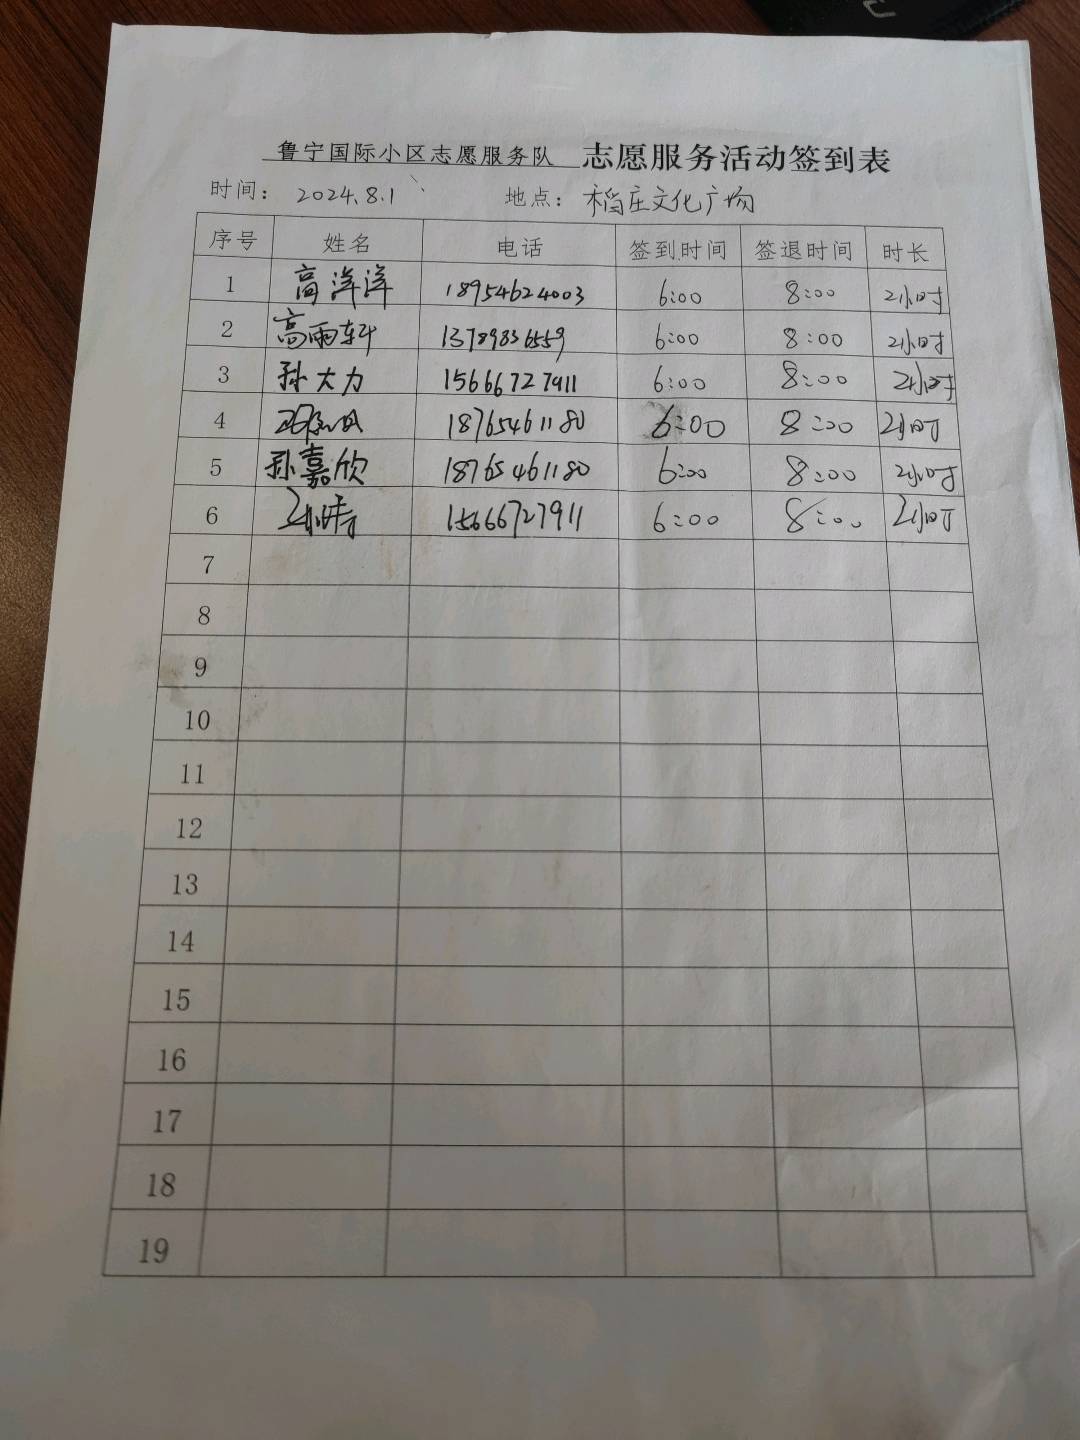 鲁宁国际小区志愿服务队 志愿服务活动签到表
时间: 2024.8.1 地点: 稻庄文化广场
序号 姓名 电话 签到时间 签退时间 时长
1 高洋洋 18954624003 6:00 8:00 2小时
2 高雨轩 13789836559 6:00 8:00 2小时
3 孙大力 15666727911 6:00 8:00 2小时
4 18765461180 6:00 8:00 2小时
5 孙嘉欣 18765461180 6:00 8:00 2小时
6 15666727911 6:00 8:00 2小时
7
8
9
10
11
12
13
14
15
16
17
18
19